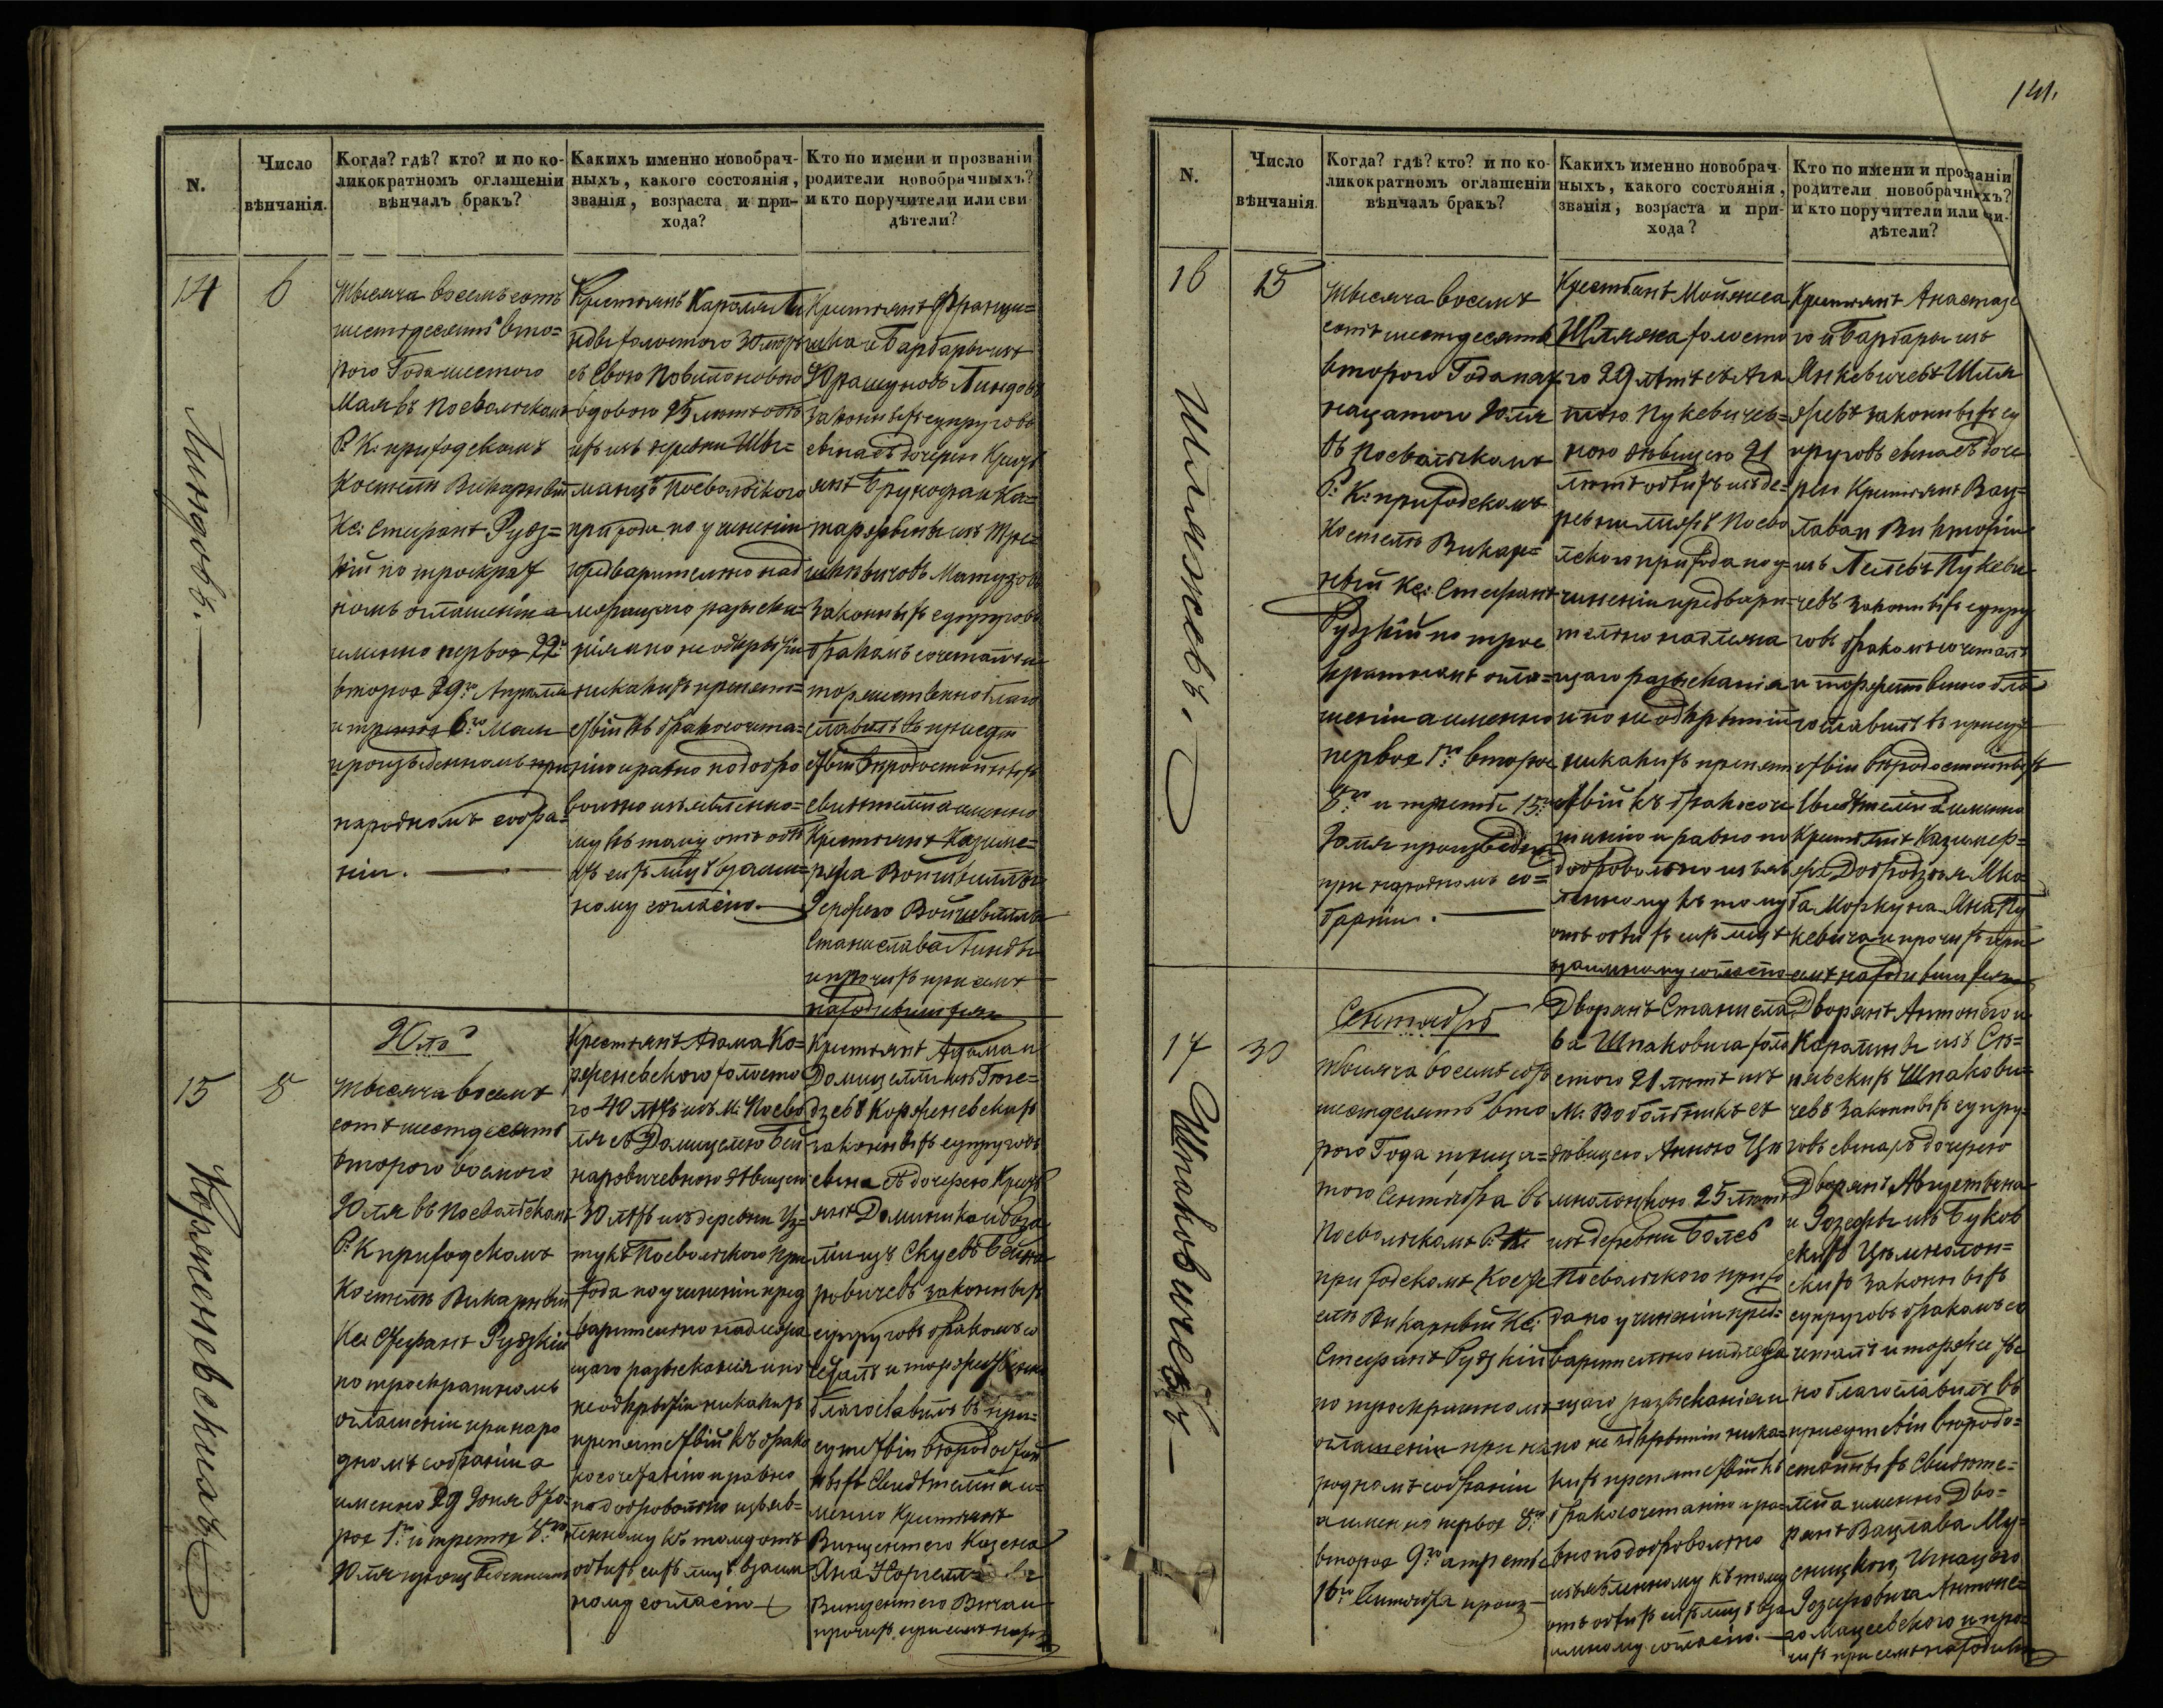 N.
Число
вѣнчанія.
Когда? гдѣ? кто? и по ко-
ликократномъ оглашеніи
вѣнчалъ бракъ?
Какихъ именно новобрач-
ныхъ, какого состоянія,
званія, возраста и при-
хода?
Кто по имени и прозваніи
родители новобрачныхъ?
и кто поручители или сви
дѣтели?
14
6
Линдовъ.
Тысяча восемьсотъ
шестьдесятъ вто=
рого Года шестого
Мая въ Поевольскомъ
Р. К. приходскомъ
Костели Викарный
Кс: Стефанъ Рудз=
кій по троекрат
номъ оглашеніи а
именно первое 22го
второе 29го Апреля
и третье 6го Мая
произведенномъ при
народномъ собра=
ніи.
Крестьянъ Кароля Ли
ндзь холостого 30 лѣтъ
съ Евою
вдовою 25 лѣтъ обо
ихъ изъ деревни
Поевольского
прихода по учиненіи
предварительно над
лежащаго разыска
нія и по не открытіи
никакихъ препят=
ствій къ бракосочета=
нію и равно по добро
вольно изъявленно=
му къ тому отъ обо
ихъ сихъ лицъ взаим=
ному согласію.
Крестьянъ Францы=
шка и Барбары изъ
Юрашуновъ Линдовъ
законныхъ супруговъ
сына съ дочерею Крест
янъ
изъ
законныхъ супруговъ
бракомъ сочеталъ и
торжественно благо
славилъ въ присут
ствіи вѣродостойныхъ
свидѣтелей а именно
Крестьянъ Казиме=
ржа
Іерофего
Станислава Линды
и прочихъ при семъ
находившихся
15
8
Корженевскихъ
Юль
Тысяча восемъ
сотъ шестдесятъ
второго восьмого
Юля въ Поевольскомъ
Р. К приходскомъ
Костелѣ Викарный
Кс: Стефанъ Рудзкій
по троекратномъ
оглашеніи при наро
дномъ собраніи а
именно 29 Юня вто=
рое 1го и третье 8го
Юля произведенномъ
Крестьянъ Адама Ко=
рженевского холосто
го 40 лѣтъ изъ М. Поево
ля съ Домицелею Бей
наровичевною дѣвицею
30 лѣтъ изъ деревни Уз=
тукъ Поевольского при
хода по учиненіи пред
варительно надлежа
щаго разысканія и по
неоткрытіи никакихъ
препятствій къ брако
сочетанію и равно
по добровольно изъяв=
ленному къ тому отъ
обоихъ сихъ лицъ взаим
ному согласію
Крестьянъ Адама и
Домицелли изъ
Корженевскихъ
законныхъ супруговъ
сына съ дочерею Крест
янъ Доминика и Роза
лии изъ Скуевъ Бейна
ровичевъ законныхъ
супруговъ бракомъ со
четалъ и торжественно
благославилъ въ при=
сутствіи вѣродостой
ныхъ Свидѣтелей а и=
менно Крестьянъ
Винцентего Козена
Яна
Винцентего
прочихъ при семъ нахо
141.
N.
Число
вѣнчанія
Когда? гдѣ? кто? и по ко-
ликократномъ оглашеніи
вѣнчалъ бракъ?
Какихъ именно новобрач-
ныхъ, какого состоянія,
званія, возраста и при-
хода?
Кто по имени и прозваніи
родители новобрачныхъ?
и кто поручители или сви-
дѣтели?
16
15
Шляжевъ.
Тысяча восемъ
сотъ шестдесятъ
второго Года пят
надцатого Юля
въ Поевольскомъ
Р. К: приходскомъ
Костелѣ Викар=
ный Кс: Стефанъ
Рудзкій по трое
кратномъ огла=
шеніи а именно
первое 1го второе
8го и третье 15го
Юля произведен
при народномъ со=
браніи.
Крестьянъ Мойжеса
Шляжа холосто
го 29 лѣтъ съ Ага
тою Пукевичев=
ною дѣвицею 21
лѣтъ обоихъ изъ де=
ревни Поево
льского прихода по у=
чиненіи предвари=
тельно надлежа
щаго разысканія
и по не открытіи
никакихъ препят
ствій къ бракосоче
танію и равно по
добровольно изъяв
ленному къ тому
отъ обоихъ сихъ лицъ
взаимному согласію
Крестьянъ Анастазе
го и Барбары изъ
Янкевичевъ Шля
жевъ законныхъ су
пруговъ сына съ доче
рею Крестьянъ Вац=
лава и Викторіи
изъ Пукеви
чевъ законныхъ супру
говъ бракомъ сочеталъ
и торжественно бла
гославилъ въ присут
ствіи вѣродостойныхъ
Свидѣтелей а именно
Крестьянъ Казимер=
жа
Яна Пу
кевича и прочихъ при
семъ находившихся
17
30
Шпаковичевъ
Сентябрь
Тысяча восемъ сотъ
шестдесятъ вто
рого Года тридца=
того Сентября въ
Поевольскомъ Р. К.
приходскомъ Косте
лѣ Викарный Кс:
Стефанъ Рудзкій
по троекратномъ
оглашеніи при на
родномъ собраніи
а именно первое 8го
второе 9го и третье
16го Сентября произ
Дворянъ Станисла
ва Шпаковича холо
стого 21 лѣтъ изъ
М. съ
дѣвицею Анною Цы
25 лѣтъ
изъ деревни
Поевольского прихо
да по учиненіи пред=
варительно надлежа
щаго разысканія и
по не открытіи ника=
кихъ препятствій къ
бракосочетанію и ра=
вно по добровольно
изъявленному къ тому
отъ обоихъ сихъ лицъ вза
имному согласію.
Дворянъ Антонего и
Каролины изъ
Шпакови=
чевъ законныхъ супру=
говъ сына съ дочерею
Дворянъ Августина
и Юзефы изъ Буков
скихъ
скихъ законныхъ
супруговъ бракомъ со
четалъ и торжестве
но благославилъ въ
присутствіи вѣродо=
стойныхъ Свидѣте=
лей а именно Дво=
рянъ Вацлава
Игнацого
Антоне=
го и про=
чихъ при семъ находив